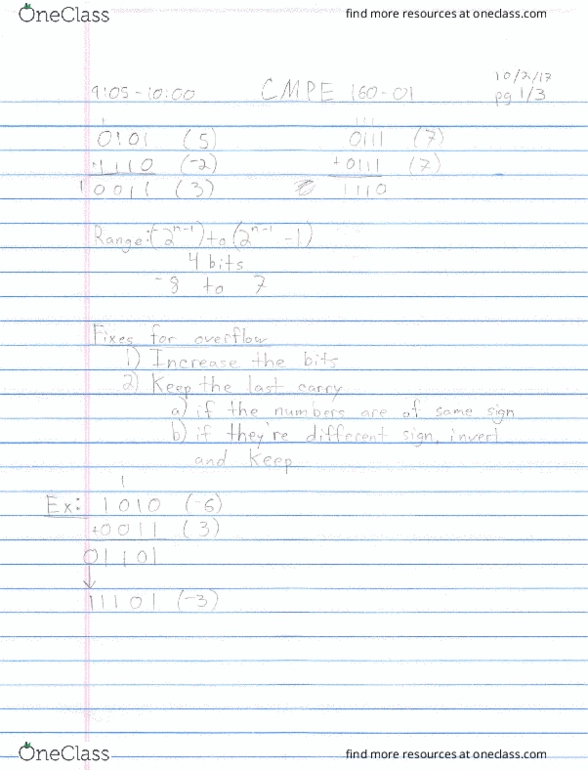 OneClass
find more resources at oneclass.com
10/2/17
9:05-10:00 CMPE 160-01 pg 1/3
1 111
0101 (5) 0111 (7)
+1110 (-2) +0111 (7)
10011 (3) 1110
Range: (-2^n-1) to (2^n-1 -1)
4 bits
-8 to 7
Fixes for overflow
1) Increase the bits
2) Keep the last carry
a) if the numbers are of same sign
b) if they're different sign, invert
and keep
1
Ex: 1010 (-6)
+0011 (3)
01101
↓
11101 (-3)
OneClass
find more resources at oneclass.com